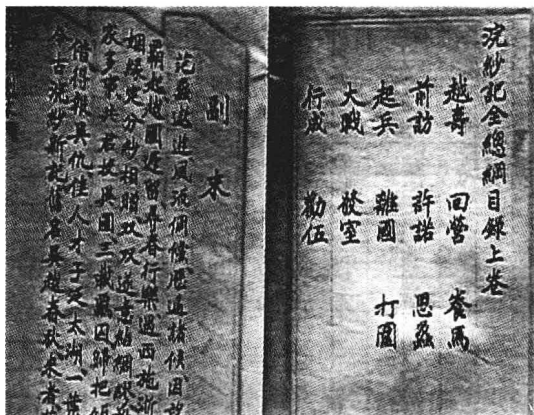 浣紗記全總綱目錄上卷
越壽 回營 養馬
前訪 許諾 思蠡
起兵 離國 打圍
大戰
行成 勸伍
副末
范蠡遨遊風流倜儻歷遍諸侯因望
霸起越國遲留尋春行樂遇西施浙
姻緣定分紗相贈双双遂意結綢繆
災多事共君被吳國三載羈囚歸把
借得報吳仇佳人才子泛太湖一葉
今古浣紗新記舊名吳越春秋末者